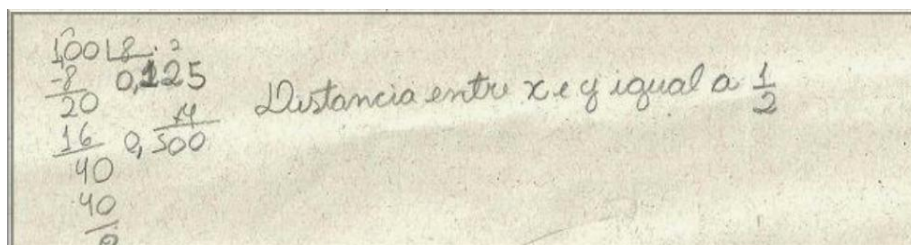 100 | 8
-8 0,125
20 x4
16 0,500
40
40
0
Distancia entre x e y igual a 1/2